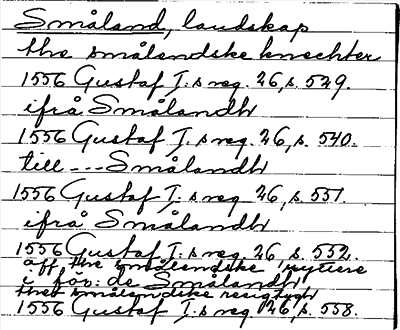 Småland, landskap
the smålandske knechter
1556 Gustaf I:s reg. 26, s. 529.
ifrå Smålandh
1556 Gustaf I:s reg. 26, s. 540.
till --- Smålandh
1556 Gustaf I:s reg. 26, s. 551.
ifrå Smålandh
1556 Gustaf I:s reg. 26, s. 552.
aff the smålendske ryttere
i för:de Smålandh
thet smålendske
1556 Gustaf I:s reg. 26, s. 558.